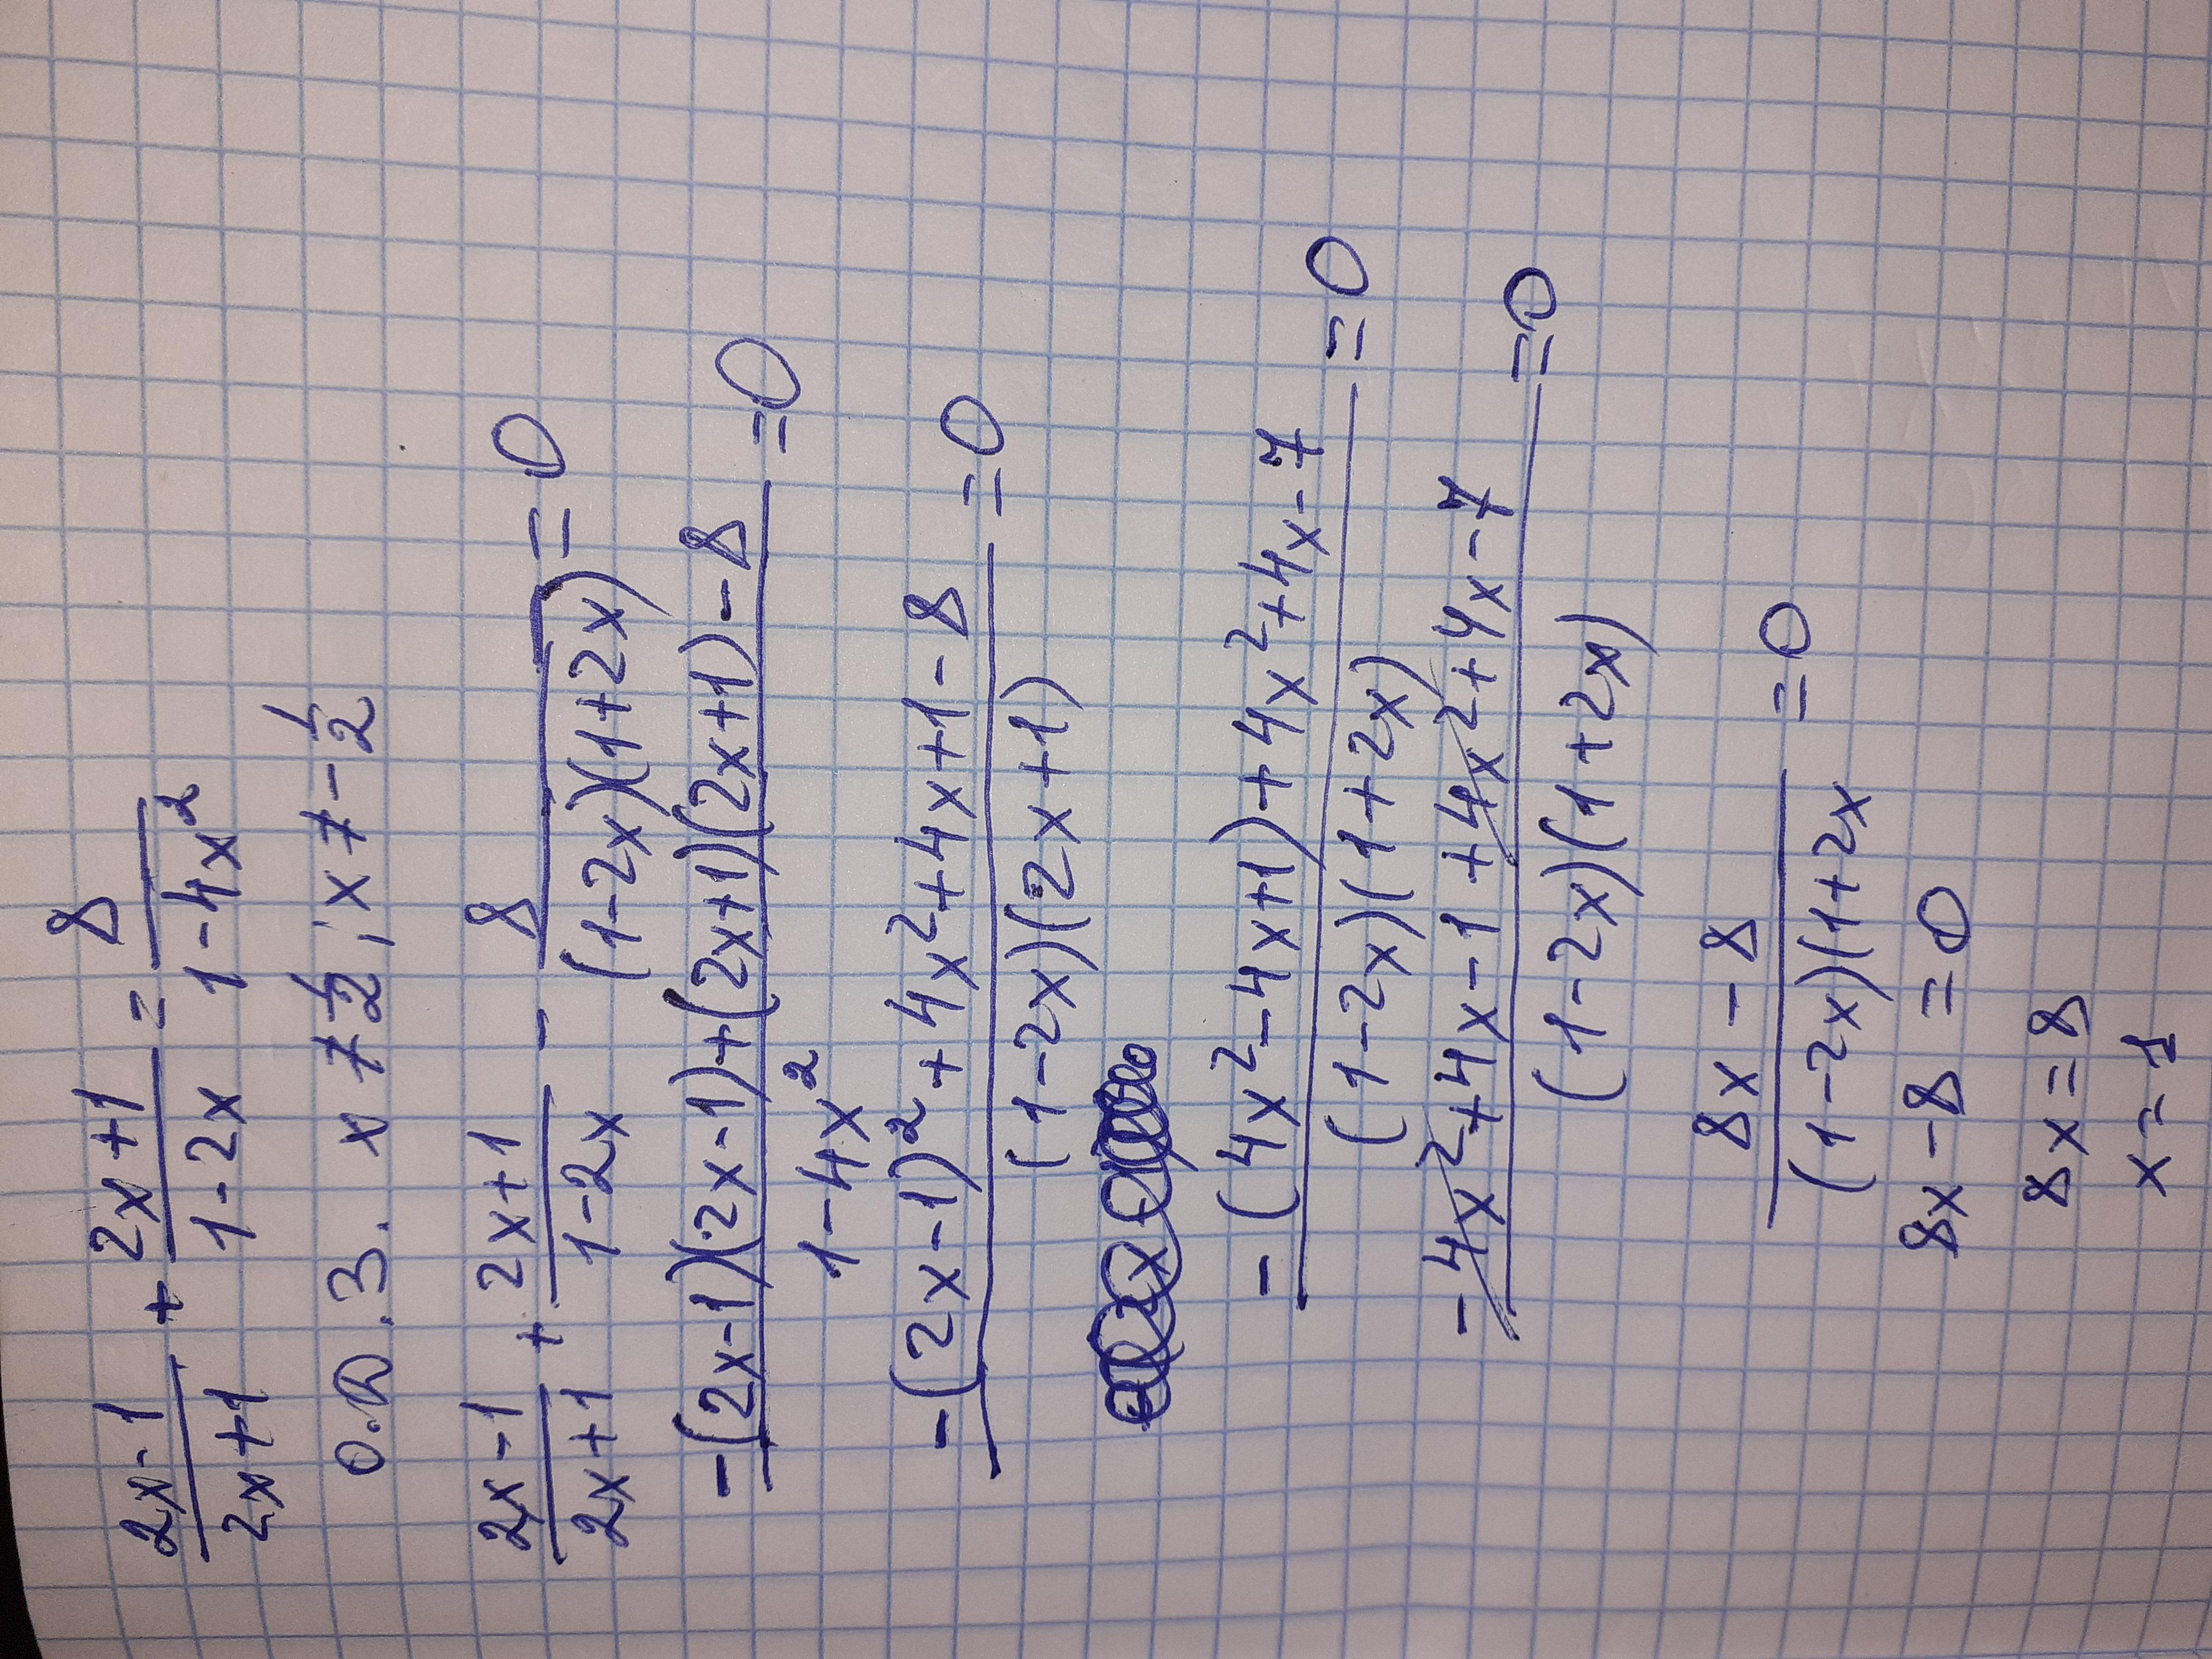 (2x-1)/(2x+1) + (2x+1)/(1-2x) = 8/(1-4x²)
О.Д.З. x ≠ 1/2; x ≠ -1/2
(2x-1)/(2x+1) + (2x+1)/(1-2x) - 8/((1-2x)(1+2x)) = 0
(-(2x-1)(2x-1)+(2x+1)(2x+1)-8)/(1-4x²) = 0
(-(2x-1)²+4x²+4x+1-8)/((1-2x)(2x+1)) = 0
(-(4x²-4x+1)+4x²+4x-7)/((1-2x)(1+2x)) = 0
(-4x²+4x-1+4x²+4x-7)/((1-2x)(1+2x)) = 0
(8x-8)/((1-2x)(1+2x) = 0
8x-8=0
8x=8
x=1